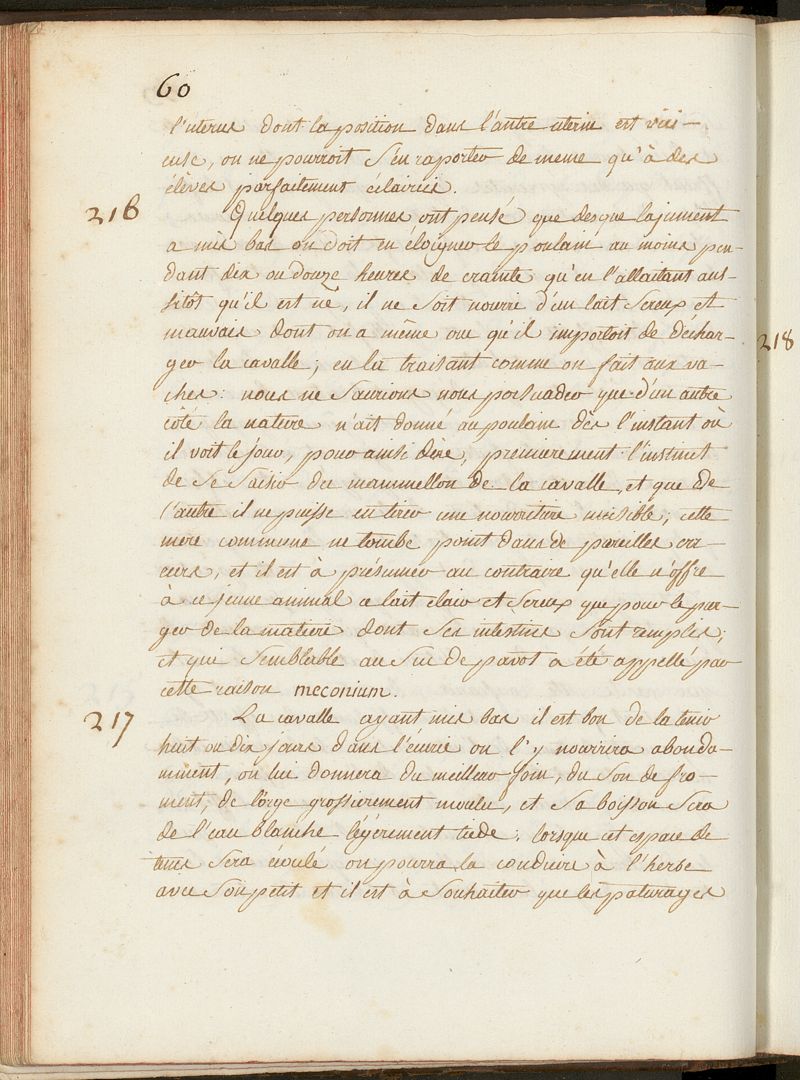 60
l'uterus dont la position dans l'antre uterin est vici-
euse, on ne pourroit s'en raporter de meme qu'à des
élèves parfaitement éclairés.
216 Quelques personnes ont pensé que desque la jument
a mis bas on doit en éloigner le poulain au moins pen-
dant dix ou douze heures de crainte qu'en l'allaitant aus-
sitôt qu'il est né, il ne soit nourri d'un lait sereux et
mauvais dont on a même cru qu'il importoit de déchar-
ger la cavalle; en la traisant comme on fait aux va-
ches: nous ne saurions nous persuader que d'un autre
côté la nature n'ait donné au poulain dès l'instant où
il voit le jour, pour ainsi dire, premierement l'instinct
de se saisir du mammellon de la cavalle, et que de
l'autre il ne puisse en tirer une nourriture nuisible; cette
mere commune ne tombe point dans de pareilles er-
reurs, et il est à présumer au contraire qu'elle n'offre
à ce jeune animal ce lait clair et sereux que pour le pur-
ger de la matiere dont ses intestins sont remplis;
et qui semblable au suc de pavot a été appellé par
cette raison meconium.
217 La cavalle ayant mis bas il est bon de la tenir
huit ou dix jours dans l'écurie on l'y nourrira abonda-
mment, on lui donnera du meilleur foin, du son de fro-
ment, de l'orge grossierement moulu, et sa boisson sera
de l'eau blanche légérement tiede; lorsque cet espace de
tems sera écoulé on pourra la conduire à l'herbe
avec son petit et il est à souhaiter que les paturages
218